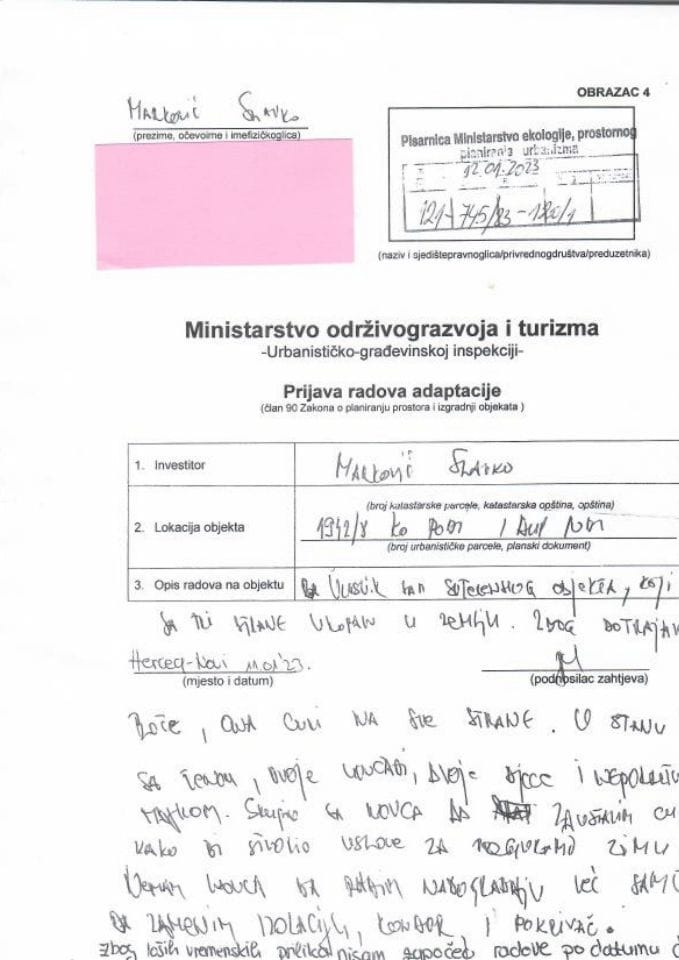 OBRAZAC 4
Marković Slavko
(prezime, očevoime i imefizičkoglica)
Pisarnica Ministarstvo ekologije, prostornog
planiranja urbanizma
12.01.2023
(naziv i sjedištepravnoglica/privrednogdruštva/preduzetnika)
Ministarstvo održivograzvoja i turizma
-Urbanističko-građevinskoj inspekciji-
Prijava radova adaptacije
(član 90 Zakona o planiranju prostora i izgradnji objekata )
1. Investitor
Marković Slavko
(broj katastarske parcele, katastarska opština, opština)
2. Lokacija objekta
1942/8 KO
(broj urbanističke parcele, planski dokument)
3. Opis radova na objektu
Vlasnik sam suterenskog objekta, koji
sa tri strane ukopan u zemlju. Zbog dotrajal
Herceg-Novi 11.01'23.
(mjesto i datum)
(podnosilac zahtjeva)
ploče, ona curi na sve strane. U stanu
sa ženom, dvoje unučadi, dvoje djece i nepokretn
majkom. Skupio sa novca da zaustavim cu
kako bi stvorio uslove za zimu
Nemam novca da radim nadogradnju već samo
da zamenim izolaciju, kondor, i pokrivač.
zbog loših vremenskih prilika nisam započeo radove po datumu